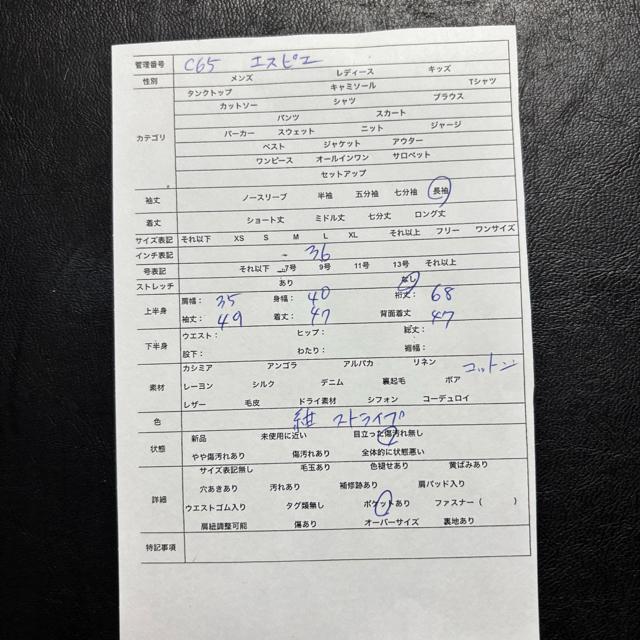 管理番号 C65 エスピエ
性別 メンズ レディース キッズ
タンクトップ キャミソール Tシャツ
カットソー シャツ ブラウス
パンツ スカート
カテゴリ パーカー スウェット ニット ジャージ
ベスト ジャケット アウター
ワンピース オールインワン サロペット
セットアップ
袖丈 ノースリーブ 半袖 五分袖 七分袖 長袖
着丈 ショート丈 ミドル丈 七分丈 ロング丈
サイズ表記 それ以下 XS S M L XL それ以上 フリー ワンサイズ
インチ表記 - 36
号表記 それ以下 7号 9号 11号 13号 それ以上
ストレッチ あり なし
上半身 肩幅: 35 身幅: 40 裄丈: 68
袖丈: 49 着丈: 47 背面着丈 47
下半身 ウエスト: ヒップ: 総丈:
股下: わたり: 裾幅:
カシミア アンゴラ アルパカ リネン コットン
素材 レーヨン シルク デニム 裏起毛 ボア
レザー 毛皮 ドライ素材 シフォン コーデュロイ
色 紺 ストライプ
状態 新品 未使用に近い 目立った傷汚れ無し
やや傷汚れあり 傷汚れあり 全体的に状態悪い
サイズ表記無し 毛玉あり 色褪せあり 黄ばみあり
詳細 穴あきあり 汚れあり 補修跡あり 肩パッド入り
ウエストゴム入り タグ類無し ポケットあり ファスナー ( )
肩紐調整可能 傷あり オーバーサイズ 裏地あり
特記事項